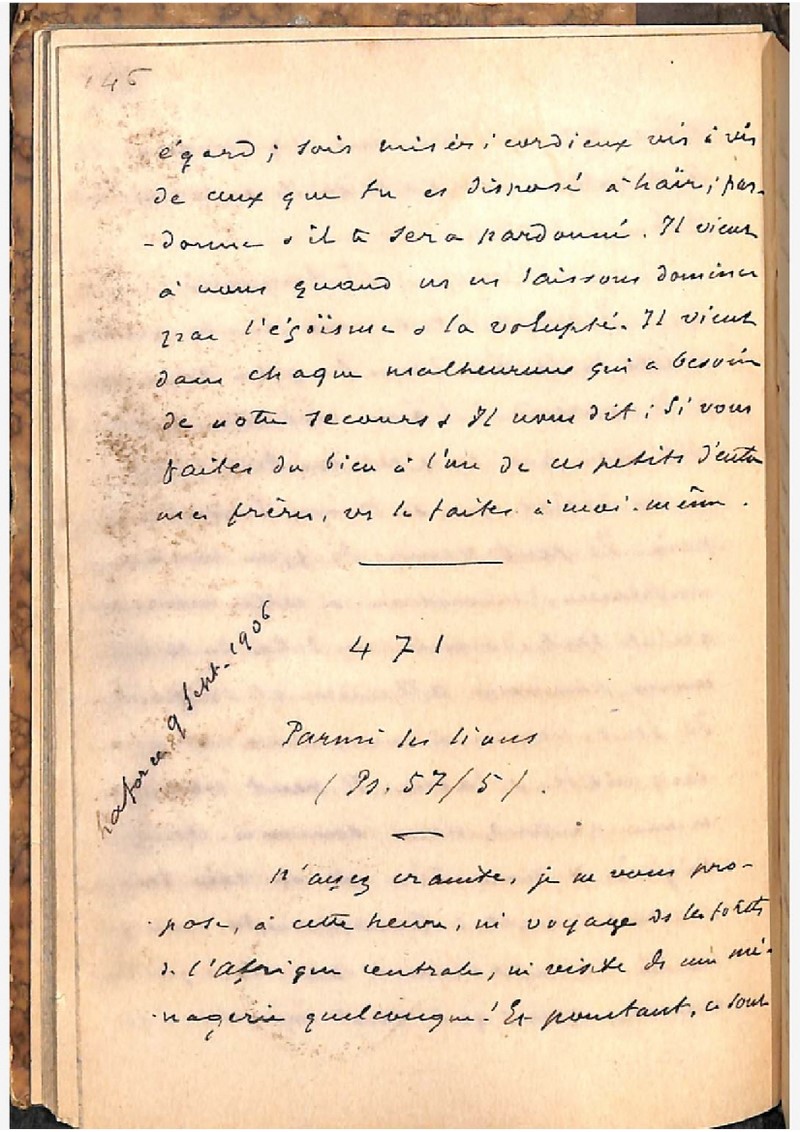 146
égard ; sois miséricordieux vis à vis
de ceux que tu es disposé à haïr ; par-
-donne & il te sera pardonné. Il vient
à nous quand ns ns laissons dominer
par l'égoïsme & la volupté. Il vient
dans chaque malheureux qui a besoin
de notre secours & Il nous dit : Si vous
faites du bien à l'un de ces petits d'entre
mes frères, vs le faites à moi-même.
471
Laforce 9 Sept. 1906
Parmi les lions
(Ps. 57/5).
N'ayez crainte, je ne vous pro-
pose, à cette heure, ni voyage ds les forêts
de l'Afrique centrale, ni visite ds une mé-
nagerie quelconque ! Et pourtant, ce sont